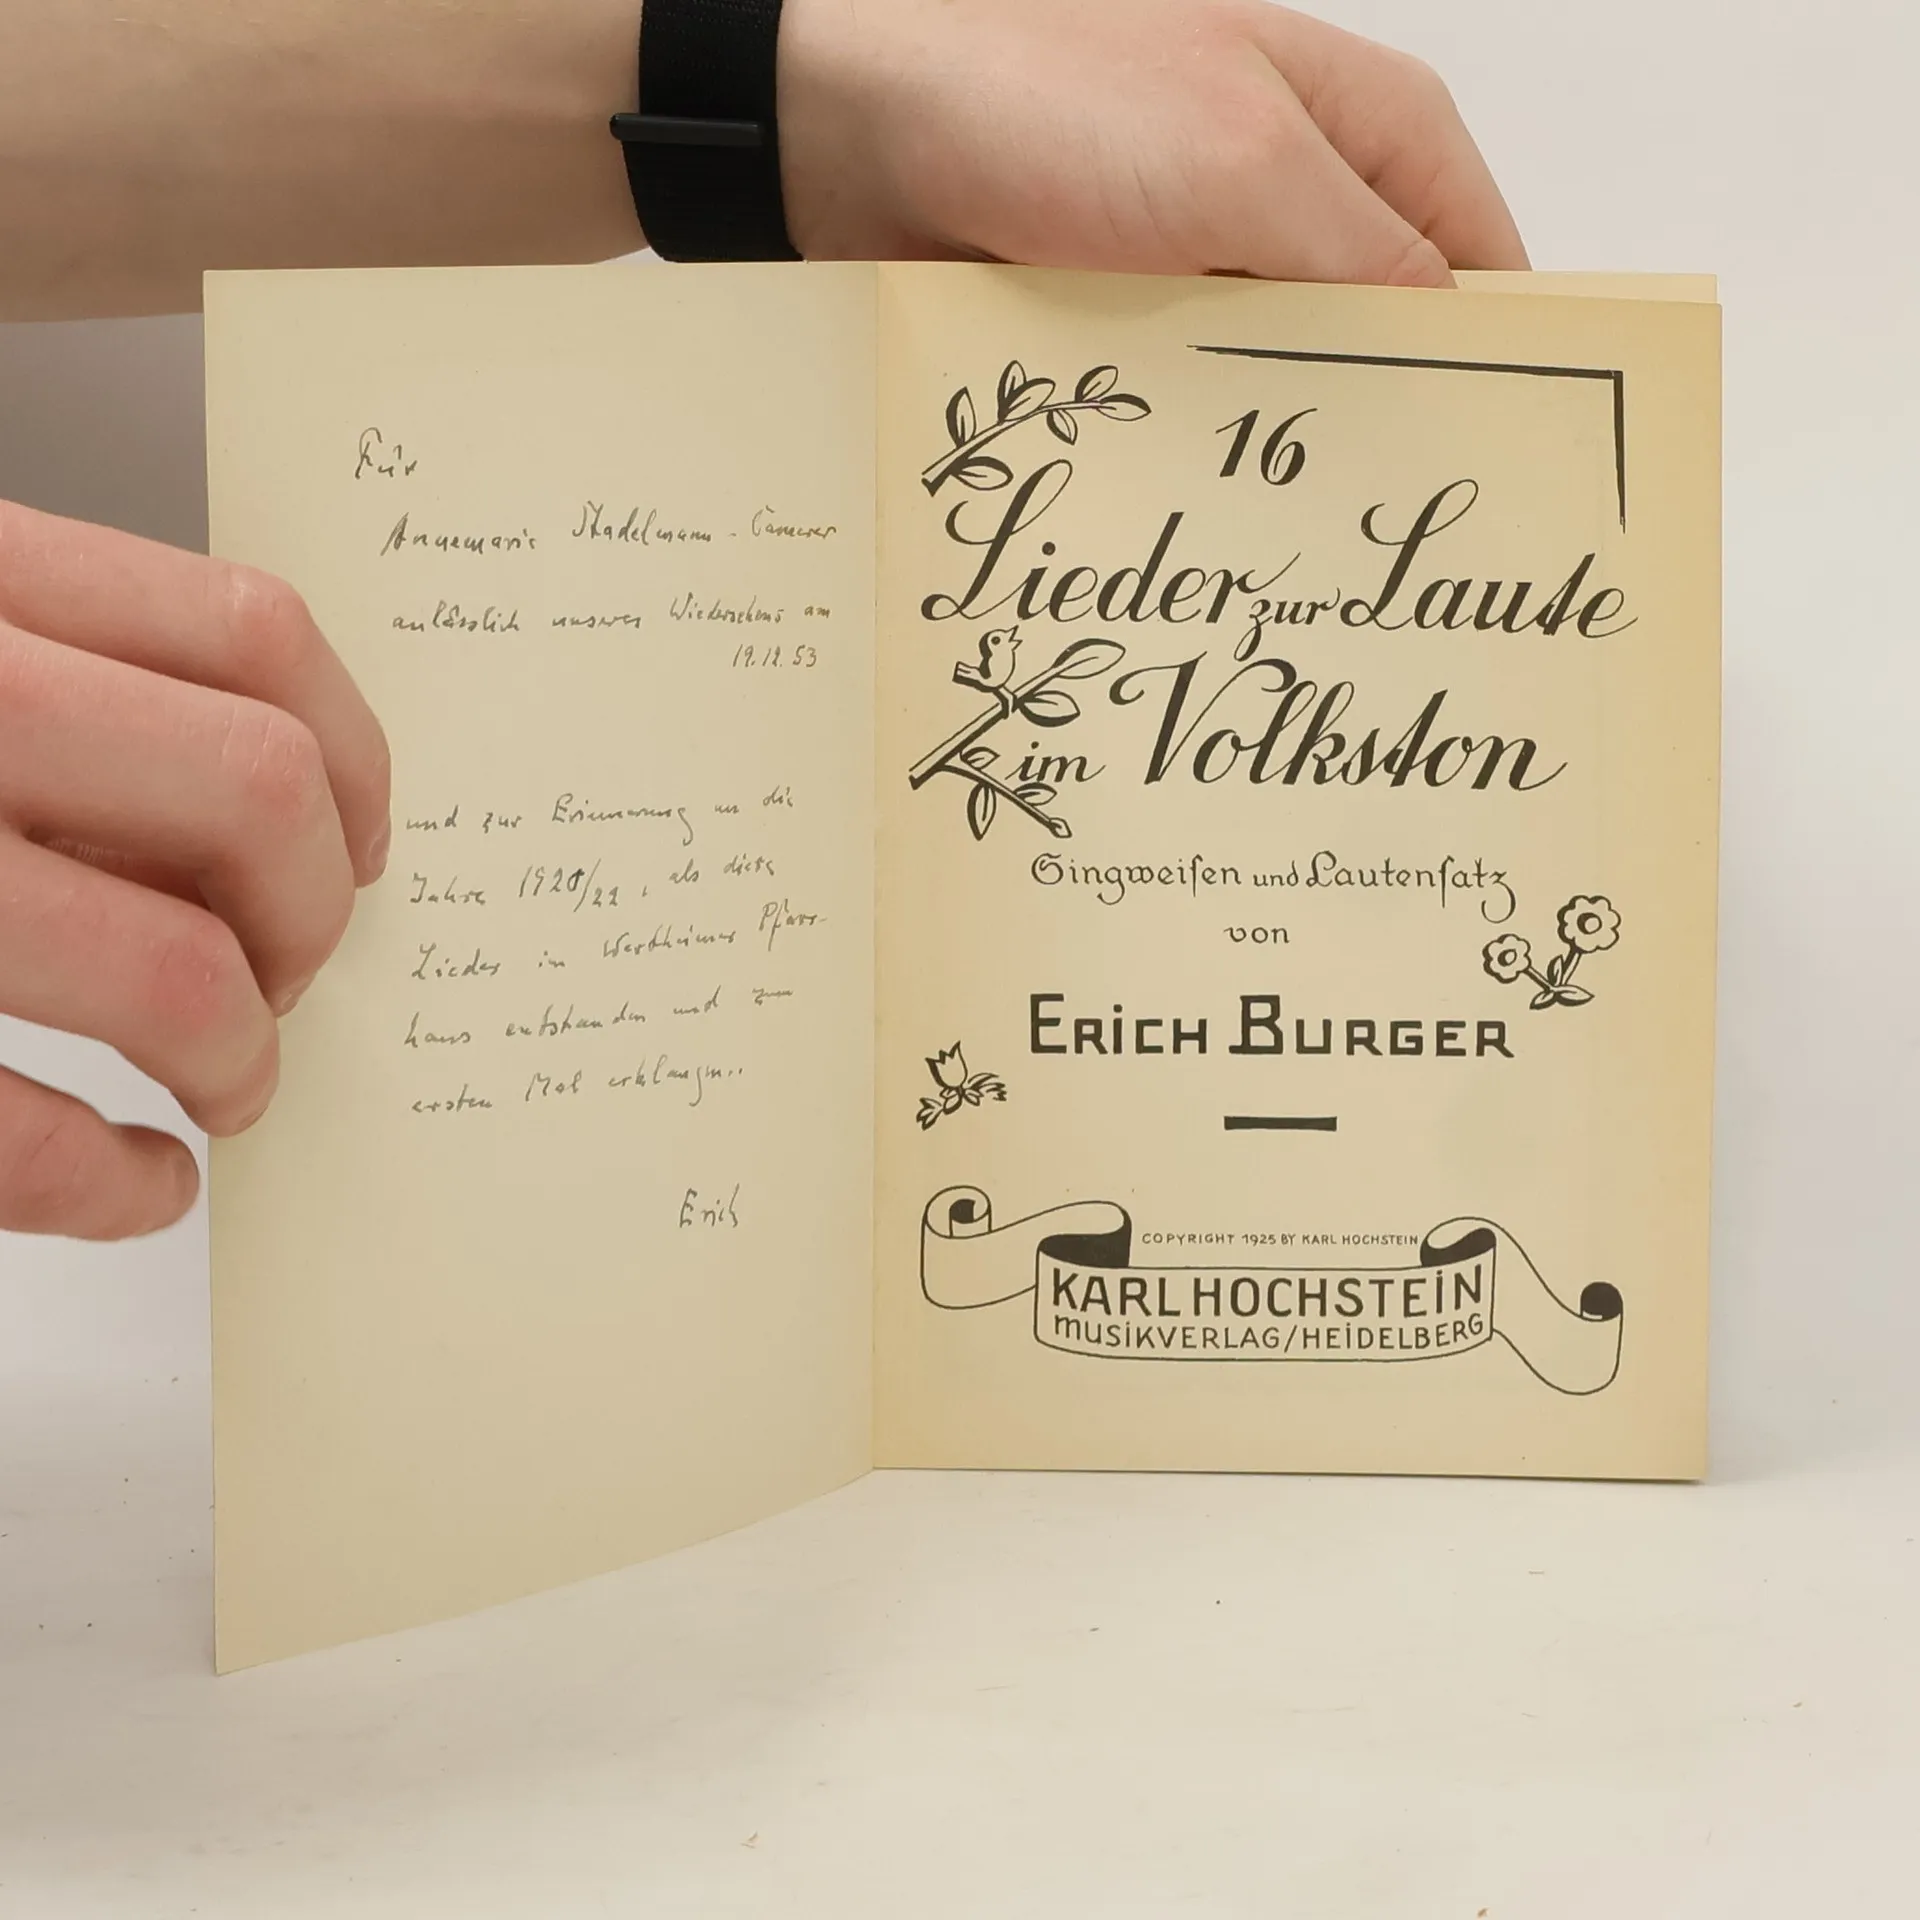 Für
Annemarie Stadelmann - Camerer
anlässlich unseres Wiedersehens am
19.12.53
und zur Erinnerung an die
Jahre 1920/22, als diese
Lieder im Wertheimer Pfarr-
haus entstanden und zum
ersten Mal erklangen..
Erich
16
Lieder zur Laute
im Volkston
Singweiſen und Lautenſatz
von
ERICH BURGER
COPYRIGHT 1925 BY KARL HOCHSTEIN
KARL HOCHSTEIN
MUSIKVERLAG/HEIDELBERG